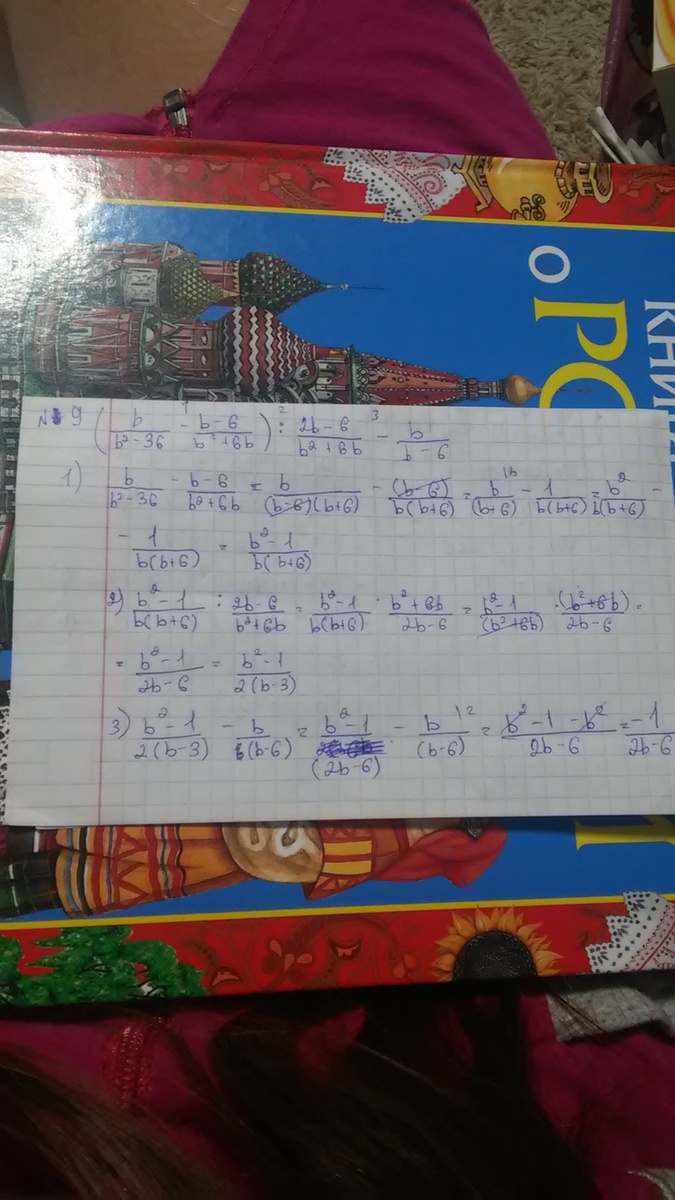 КНИГА
О РО
И
№ 9 (b/(b²-36) - (b-6)/(b²+6b)) : (2b-6)/(b²+6b) - b/(b-6)
1) b/(b²-36) - (b-6)/(b²+6b) = b/((b-6)(b+6)) - (b-6)/(b(b+6)) = b/(b+6) - 1/(b(b+6)) = b²/(b(b+6)) -
- 1/(b(b+6)) = (b²-1)/(b(b+6))
2) (b²-1)/(b(b+6)) : (2b-6)/(b²+6b) = (b²-1)/(b(b+6)) · (b²+6b)/(2b-6) = (b²-1)/(b²+6b) · (b²+6b)/(2b-6) =
= (b²-1)/(2b-6) = (b²-1)/(2(b-3))
3) (b²-1)/(2(b-3)) - b/(b-6) = (b²-1)/(2b-6) - b/(b-6) = (b²-1-b²)/(2b-6) = -1/(2b-6)